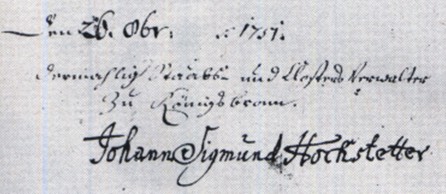 den 26. 8br: 1751.
dermahlig Staabs- und Closters Verwalter
zu Königsbronn.
Johann Sigmund Hochstetter